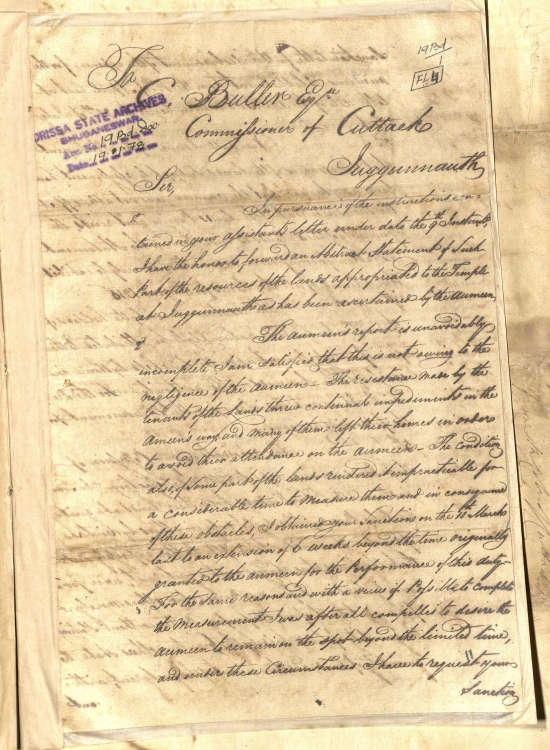 19Bd
1
FL4
ORISSA STATE ARCHIVES
BHUBANESWAR
Acc. No. 19Bd
Date 19.21.72
To
C. Buller Esqre
Commissioner of Cuttack
Juggunnauth
Sir,
In pursuance of the instructions con-
tained in your assistants letter under date the 9th Instant,
I have the honor to forward an Abstract Statement of Such
Part of the resources of the lands appropriated to the Temple
at Juggunnauth as has been ascertained by the aumeen,
2 The aumeen's report is unavoidably
incomplete I am Satisfied that this is not owing to the
negligence of the aumeen – The resistance made by the
tenants of the Lands threw continual impediments in the
Ameen's way and many of them left their homes in order
to avoid their attendance on the aumeen – The Condition
also, of Some part of the lands rendered it impracticable for
a considerable time to measure them and in consequence
of these obstacles, I obtained your Sanction on the 11th March
last to an extension of 6 weeks beyond the time originally
granted to the aumeen for the Performance of this duty –
For the Same reasons and with a view if Possible to complete
the Measurement I was after all compelled to desire the
aumeen to remain on the spot beyond the limited time,
and under these Circumstances I have to request your
Sanction